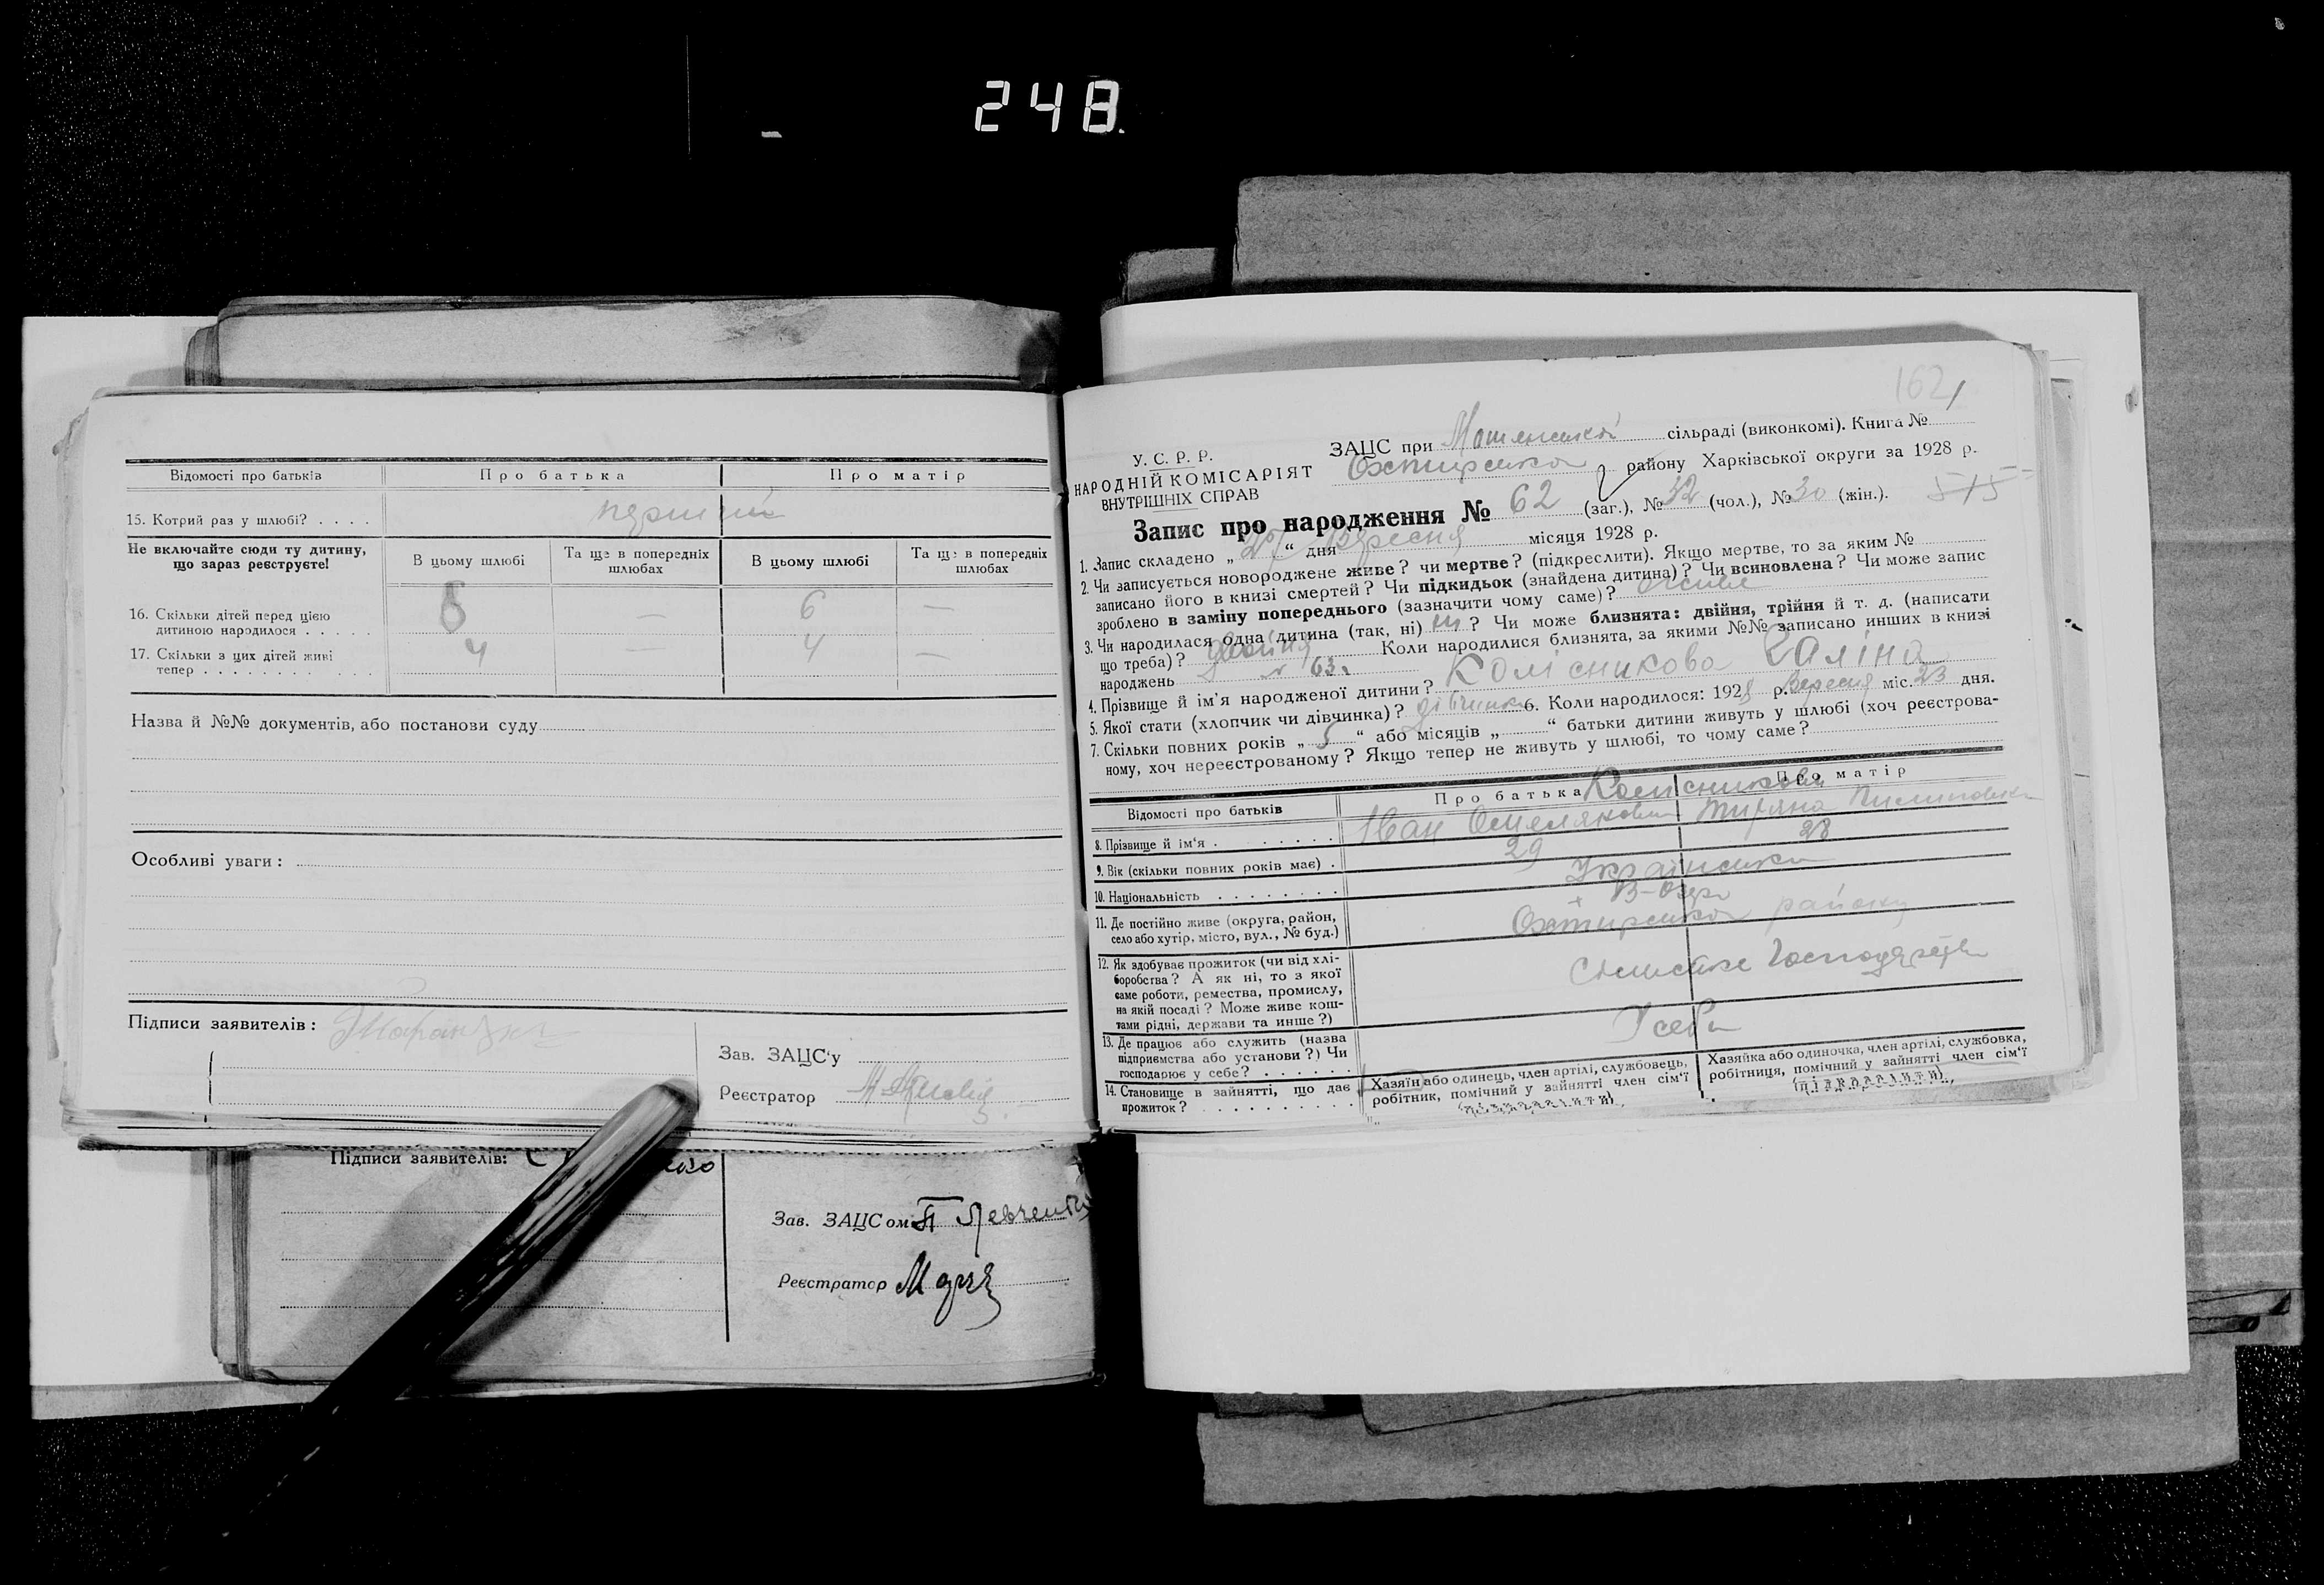 248.
Відомості про батьків
Про батька
Про матір
15. Котрий раз у шлюбі? . . . .
перший
Не включайте сюди ту дитину,
що зараз реєструєте!
В цьому шлюбі
Та ще в попередніх
шлюбах
В цьому шлюбі
Та ще в попередніх
шлюбах
16. Скільки дітей перед цією
дитиною народилося . . . . .
6 — 6 —
17. Скільки з цих дітей живі
тепер . . . . . . . . . . .
4 — 4 —
Назва й №№ документів, або постанови суду
Особливі уваги:
Підписи заявителів:
Зав. ЗАЦС'у
Реєстратор
Підписи заявителів:
Зав. ЗАЦСом П Левченко
Реєстратор
162
У. С. Р. Р.
НАРОДНІЙ КОМІСАРІЯТ
ВНУТРІШНІХ СПРАВ
ЗАЦС при сільраді (виконкомі). Книга №
Охтирсько району Харківської округи за 1928 р.
Запис про народження № 62 (заг.), № 32 (чол.), № 30 (жін.).
515
1. Запис складено „27“ дня Вересня місяця 1928 р.
2. Чи записується новороджене живе? чи мертве? (підкреслити). Якщо мертве, то за яким №
записано його в книзі смертей? Чи підкидьок (знайдена дитина)? Чи всиновлена? Чи може запис
зроблено в заміну попереднього (зазначити чому саме)? живе
3. Чи народилася одна дитина (так, ні) ні ? Чи може близнята: двійня, трійня й т. д. (написати
що треба)? двойня Коли народилися близнята, за якими №№ записано инших в книзі
народжень № 63.
4. Прізвище й ім'я народженої дитини? Колісникова Галіна
5. Якої стати (хлопчик чи дівчинка)? дівчинка 6. Коли народилося: 1928 р. Вересня міс. 23 дня.
7. Скільки повних років „5“ або місяців „ “ батьки дитини живуть у шлюбі (хоч реєстрова-
ному, хоч нереєстрованому? Якщо тепер не живуть у шлюбі, то чому саме?
Відомості про батьків
Про батька
Про матір
Колисникови
8. Прізвище й ім'я . . . . . . . . .
Іван Омелякович
9. Вік (скільки повних років має) .
29
28
10. Національність . . . . . . .
Українська
11. Де постійно живе (округа, район,
село або хутір, місто, вул., № буд.)
В-Озеро
Охтирсько району
12. Як здобуває прожиток (чи від хлі-
боробства? А як ні, то з якої
саме роботи, ремества, промислу,
на якій посаді? Може живе кош-
тами рідні, держави та инше?)
13. Де працює або служить (назва
підприємства або установи?) Чи
господарює у себе? . . . . . .
У себе
14. Становище в зайнятті, що дає
прожиток? . . . . . . . . . .
Хазяїн або одинець, член артілі, службовець,
робітник, помічний у зайнятті член сім'ї
(підкреслити)
Хазяйка або одиночка, член артілі, службовка,
робітниця, помічний у зайнятті член сім'ї
(підкреслити)